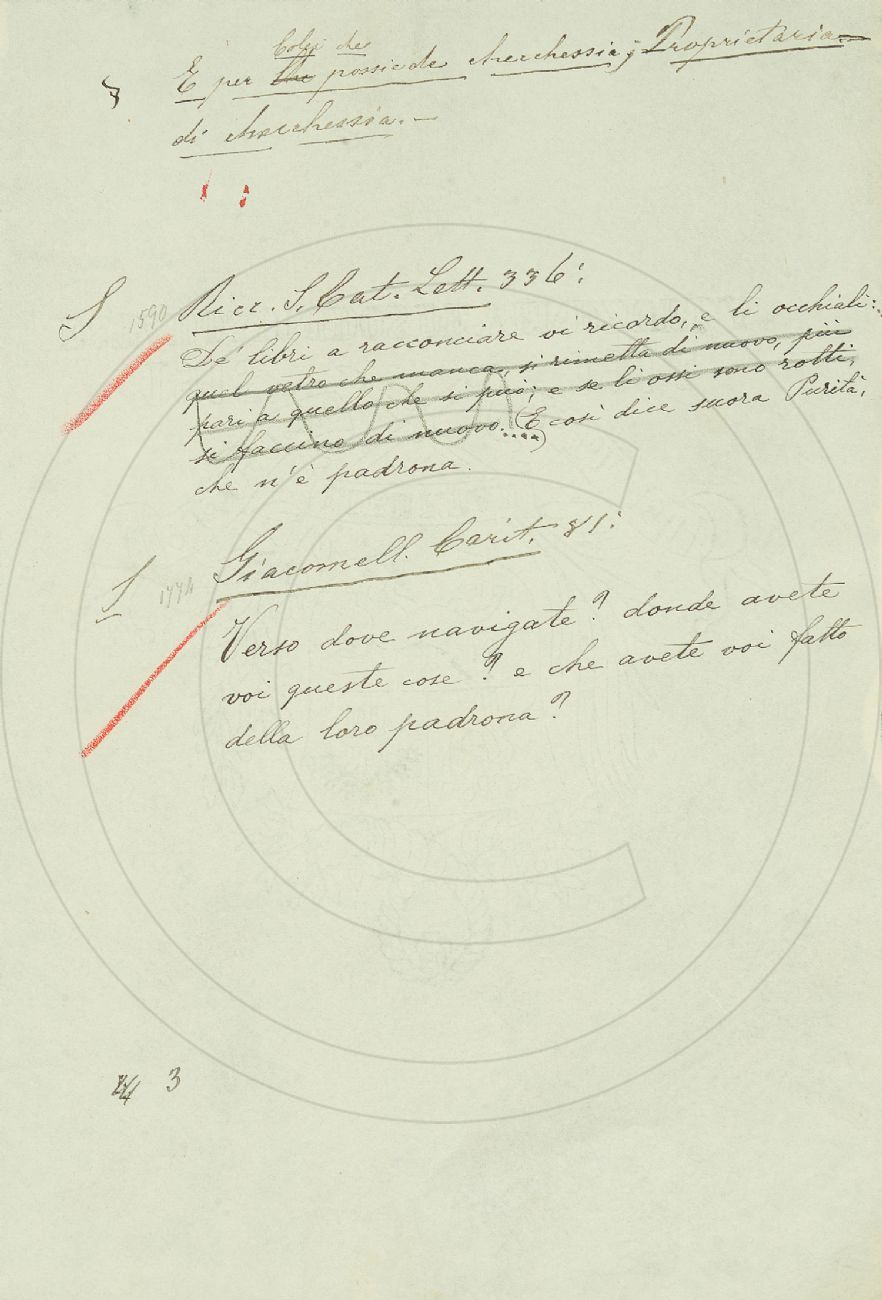 Colei che
§ E per Chi possiede checchessia; Proprietaria
di checchessia. –
S 1590 Ricc. S. Cat. Lett. 336:
De' libri a racconciare vi ricordo, e li occhiali:
quel vetro che manca, si rimetta di nuovo, più
pari a quello che si può; e se li ossi sono rotti,
si faccino di nuovo..... (E così dice suora Purità,
che n'è padrona.
S 1774 Giacomell. Carit. 81:
Verso dove navigate? donde avete
voi queste cose? e che avete voi fatto
della loro padrona?
3